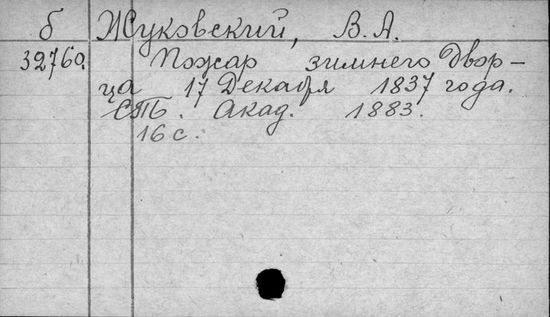 б Жуковский, В.А.
32760. Пожар зимнего Двор-
ца 17 Декабря 1837 года.
СПБ. Акад. 1883.
16 с.